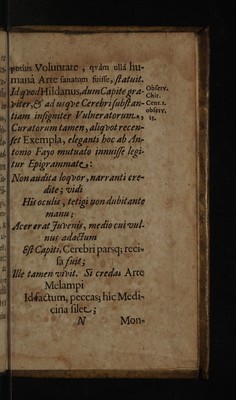 potius Voluntate, qvàm ullâ hu-
manâ Arte sanatum fuisse, statuit.
Id qvod Hildanus, dum Capite gra-
viter, & ad usqve Cerebri substan-
tiam insigniter Vulneratorum,
Curatorum tamen, aliqvot recen-
set Exempla, eleganti hoc ab An-
tonio Fayo mutuato innuisse legi-
tur Epigrammate:
Observ.
Chir.
Cent. 1.
observ.
15.
Non audita loqvor, narranti cre-
dite; vidi
His oculis, tetigi non dubitante
manu;
Acer erat Juvenis, medio cui vul-
nus adactum
Est Capiti, Cerebri parsq; reci-
sa fuit;
Ille tamen vivit. Si credas Arte
Melampi
Id factum, peccas; hic Medi-
cina silet;
N
Mon-